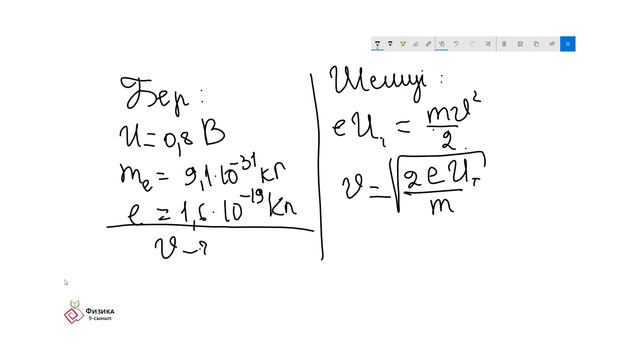 Бер:
U = 0,8 В
mₑ = 9,1·10⁻³¹ кг
e = 1,6·10⁻¹⁹ Кл
υ – ?
Шешуі:
eUₜ = mυ²/2
υ = √(2eUₜ/m)
Физика
9-сынып